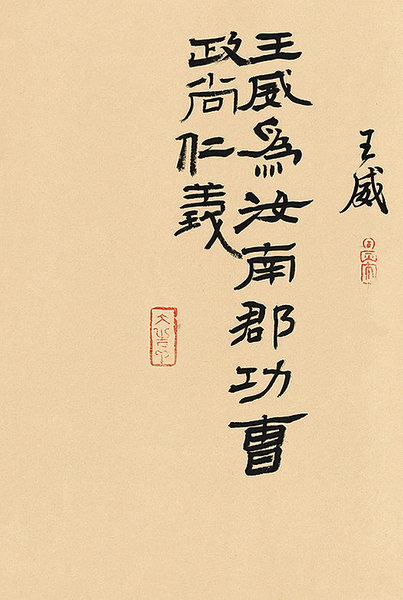 王威
王威為汝南郡功曹
政尚仁義